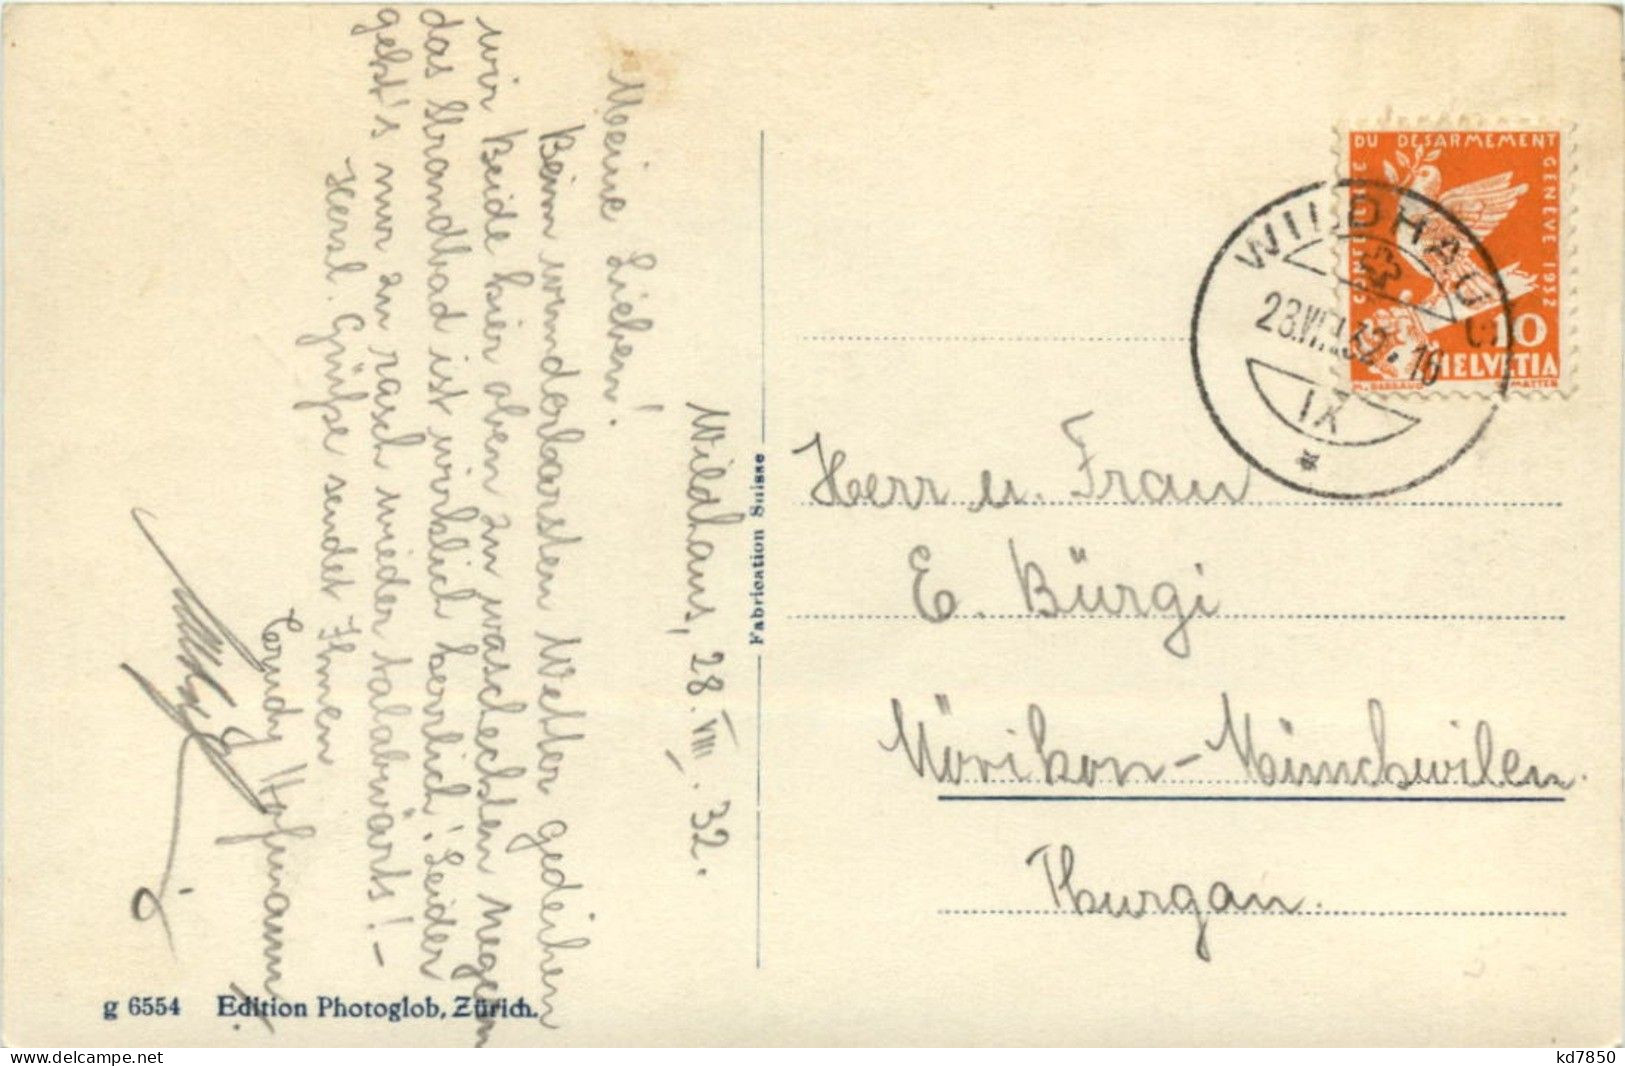 Wildhaus, 28. VIII. 32.
Meine Lieben!
Beim wunderbarsten Wetter gedeihen
wir Beide hier oben zu waschechten Negern
das Strandbad ist wirklich herrlich! Leider
geht's nur zu rasch wieder talabwärts! –
Herzl. Grüsse sendet Ihnen
Hofmann
g 6554 Edition Photoglob, Zürich.
Fabrication Suisse
DU DESARMEMENT
GENÈVE 1932
10
HELVETIA
WILDHAUS
28.VIII.32.16
IX
Herr u. Frau
E. Bürgi
Mörikon-Münchwilen.
Thurgau.
www.delcampe.net
kd7850